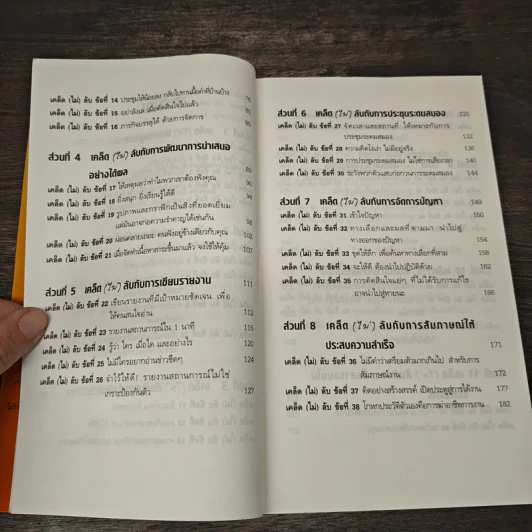 เคล็ด (ไม่) ลับ ข้อที่ 14 ประชุมให้น้อยลง กลับไปทานมื้อค่ำที่บ้านบ้าง 76
เคล็ด (ไม่) ลับ ข้อที่ 15 อย่าลังเล เมื่อตัดสินใจไปแล้ว
เคล็ด (ไม่) ลับ ข้อที่ 16 ภารกิจบรรลุได้ ด้วยการจัดการ
ส่วนที่ 4 เคล็ด (ไม่) ลับกับการพัฒนาการนำเสนอ
อย่างได้ผล
เคล็ด (ไม่) ลับ ข้อที่ 17 ให้เหตุผลว่าทำไมพวกเขาต้องฟังคุณ
เคล็ด (ไม่) ลับ ข้อที่ 18 ยิ่งสนุก ยิ่งเรียนรู้ได้ดี
เคล็ด (ไม่) ลับ ข้อที่ 19 รูปภาพและกราฟิกเป็นสิ่งที่ยอดเยี่ยม
แต่มันอาจก่อความรำคาญได้เช่นกัน 98
เคล็ด (ไม่) ลับ ข้อที่ 20 ผ่อนคลายเถอะ คนฟังอยู่ข้างเดียวกับคุณ 103
เคล็ด (ไม่) ลับ ข้อที่ 21 เมื่อจัดทำเนื้อหาสาระขึ้นมาแล้ว จงใช้ให้คุ้ม 107
ส่วนที่ 5 เคล็ด (ไม่) ลับกับการเขียนรายงาน 111
เคล็ด (ไม่) ลับ ข้อที่ 22 เขียนรายงานที่มีเป้าหมายชัดเจน เพื่อ
ให้คนสนใจอ่าน 112
เคล็ด (ไม่) ลับ ข้อที่ 23 รายงานสถานการณ์ใน 1 นาที 116
เคล็ด (ไม่) ลับ ข้อที่ 24 รู้ว่า ใคร เมื่อใด และอย่างไร 120
เคล็ด (ไม่) ลับ ข้อที่ 25 ไม่มีใครอยากอ่านข่าวชืดๆ 124
เคล็ด (ไม่) ลับ ข้อที่ 26 จำไว้ให้ดี! รายงานสถานการณ์ไม่ใช่
เกราะป้องกันตัว 127
ส่วนที่ 6 เคล็ด (ไม่) ลับกับการประชุมระดมสมอง 131
เคล็ด (ไม่) ลับ ข้อที่ 27 จัดเวลาและสถานที่ ให้เหมาะกับการ
ประชุมระดมสมอง 132
เคล็ด (ไม่) ลับ ข้อที่ 28 ความคิดโง่เง่า ไม่มีอยู่จริง 136
เคล็ด (ไม่) ลับ ข้อที่ 29 การประชุมระดมสมอง ไม่ใช่การเสียเวลา
เคล็ด (ไม่) ลับ ข้อที่ 30 ระวังพวกตัวแสบก่อกวนการระดมสมอง 144
ส่วนที่ 7 เคล็ด (ไม่) ลับกับการจัดการปัญหา 149
เคล็ด (ไม่) ลับ ข้อที่ 31 เข้าใจปัญหา 150
เคล็ด (ไม่) ลับ ข้อที่ 32 ทางเลือกและผลที่ตามมา นำไปสู่
ทางออกของปัญหา 154
เคล็ด (ไม่) ลับ ข้อที่ 33 ขุดให้ลึก เพื่อค้นหาทางเลือกที่ตาม 158
เคล็ด (ไม่) ลับ ข้อที่ 34 จะให้ดี ต้องนำไปปฏิบัติด้วย 162
เคล็ด (ไม่) ลับ ข้อที่ 35 การตัดสินใจแย่ๆ ที่ไม่ได้รับการแก้ไข
อาจนำไปสู่หายนะ 166
ส่วนที่ 8 เคล็ด (ไม่) ลับกับการสัมภาษณ์ให้
ประสบความสำเร็จ 171
เคล็ด (ไม่) ลับ ข้อที่ 36 ไม่มีคำว่าเตรียมตัวมากเกินไป สำหรับการ
สัมภาษณ์งาน 172
เคล็ด (ไม่) ลับ ข้อที่ 37 คิดอย่างสร้างสรรค์ เปิดประตูสู่การได้งาน 177
เคล็ด (ไม่) ลับ ข้อที่ 38 โกหกประวัติตัวเองคือการฆ่าอาชีพการงาน 182